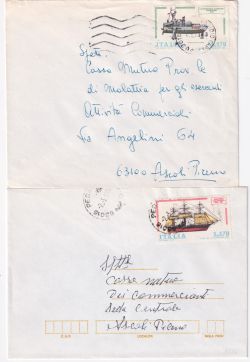 ITALIA
Spett.
Cassa Mutua Prov.le
di Malattia per gli esercenti
Attività Commerciali
Via Angelini 64
63100 Ascoli Piceno
ITALIA
L.170
Spett.
Cassa mutua
Dei Commercianti
Sede Centrale
Ascoli Piceno
C.A.P.
LOCALITÀ
SIGLA PROV.